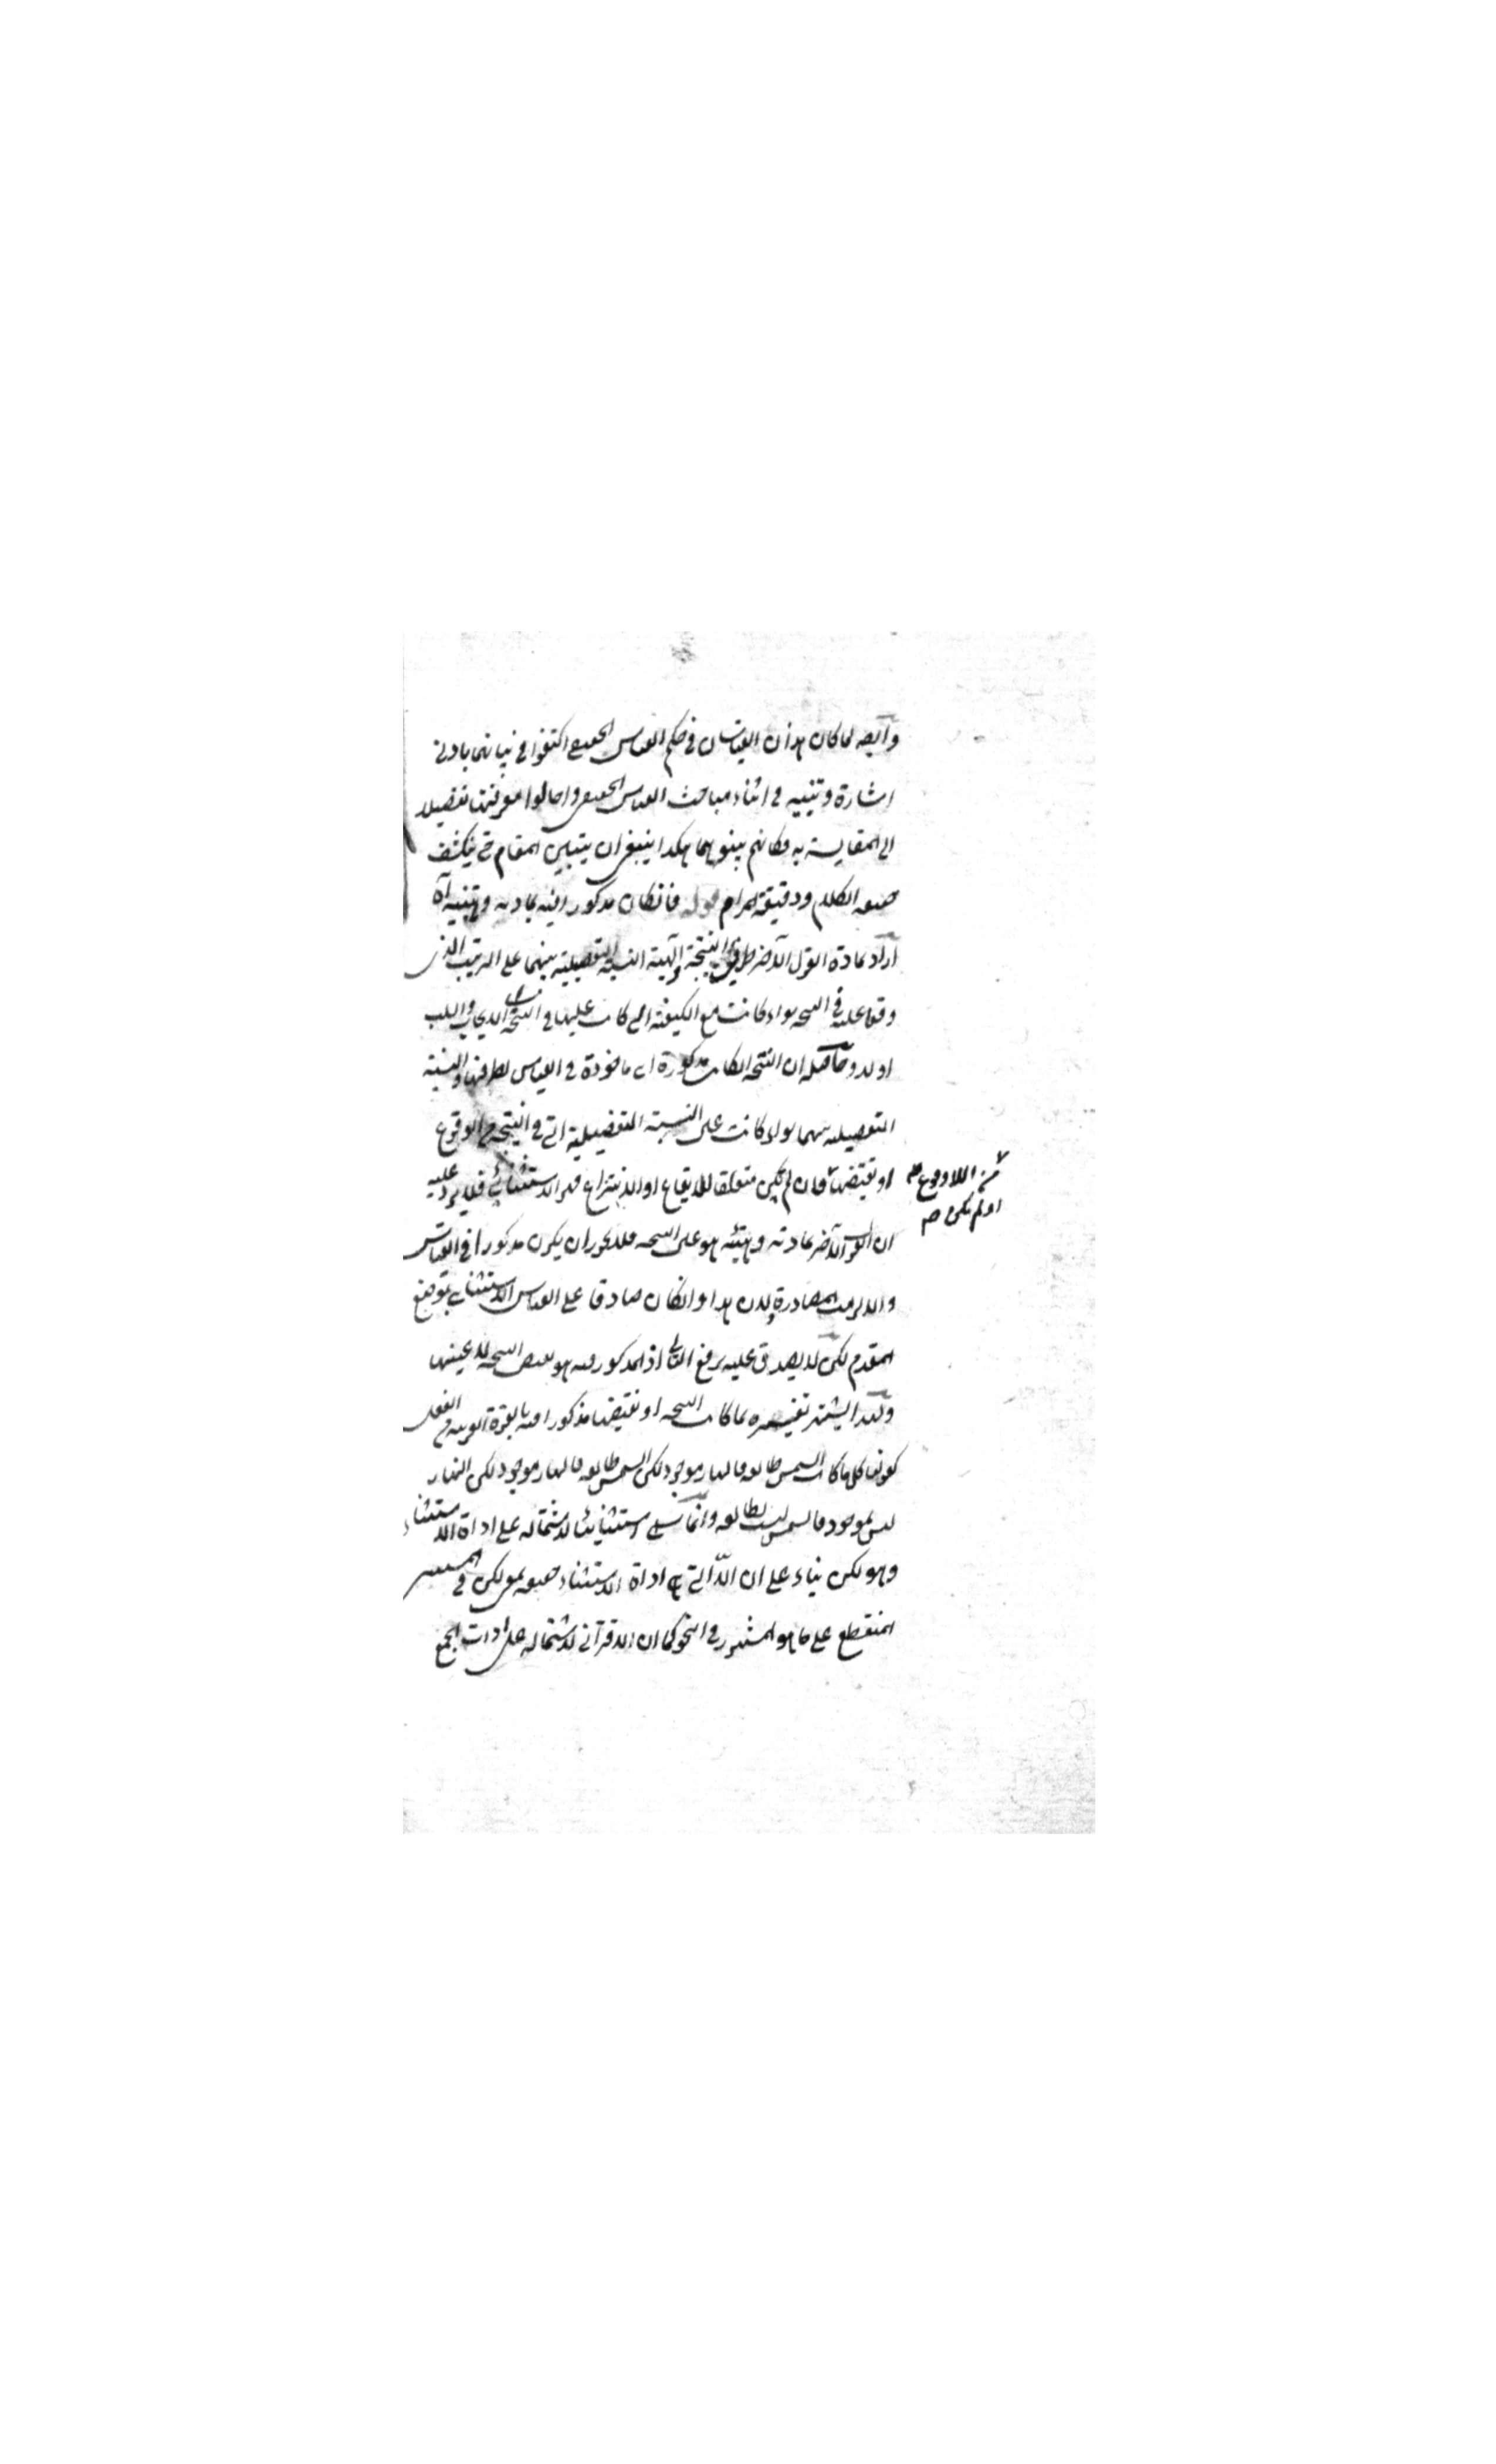 وايضا لما كان هذان القياسان في حكم القياس الحقيقي اكتفوا في بيانهما بادنى
اشارة وتنبيه في اثناء مباحث القياس الحقيقي واحالوا معرفتهما تفصيلا
الى المقايسة به فكانهم بينوهما هكذا ينبغي ان يتبين المقام حتى ينكشف
حقيقة الكلام ودقيقة المرام قوله فانكان مذكورا فيه بمادته وهيئته آه
اراد بمادة القول الآخر طرفي النتيجة والهيئة النسبة التفصيلية بينهما على الترتيب الذي
وقعا عليه في النتيجة سواء كانت مع الكيفية التي كانت عليها في النتيجة الايجاب والسلب
او لا وحاصله ان النتيجة انكانت مذكورة اي ماخوذة في القياس بطرفيها والنسبة
التفصيلية بينهما سواء كانت على النسبة التفصيلية التي في النتيجة من الوقوع
او نقيضها فان لم يكن متعلقا للايقاع او الانتزاع فهو الاستثنائي فلا يرد عليه
من اللاوقوع
او لم يكن صح
ان القول الآخر بمادته وهيئته هو عين النتيجة فلا يجوز ان يكون مذكورا في القياس
والا لزمت المصادرة ولان هذا وانكان صادقا على القياس الاستثنائي بوضع
المقدم لكن لا يصدق عليه برفع التالي اذ المذكور فيه هو نقيض النتيجة لا عينها
ولهذا اشتهر تفسيره بما كانت النتيجة او نقيضها مذكورا فيه بالقوة القريبة من الفعل
كقولنا كلما كانت الشمس طالعة فالنهار موجود لكن الشمس طالعة فالنهار موجود لكن النهار
ليس بموجود فالشمس ليست بطالعة وانما سمي استثنائيا لاشتماله على اداة الاستثناء
وهو لكن بناء على ان الا التي هي اداة الاستثناء حقيقة بمعنى لكن في المستثنى
المنقطع على ما هو المشهور في النحو كما ان الاقتراني لاشتماله على ادات الجمع